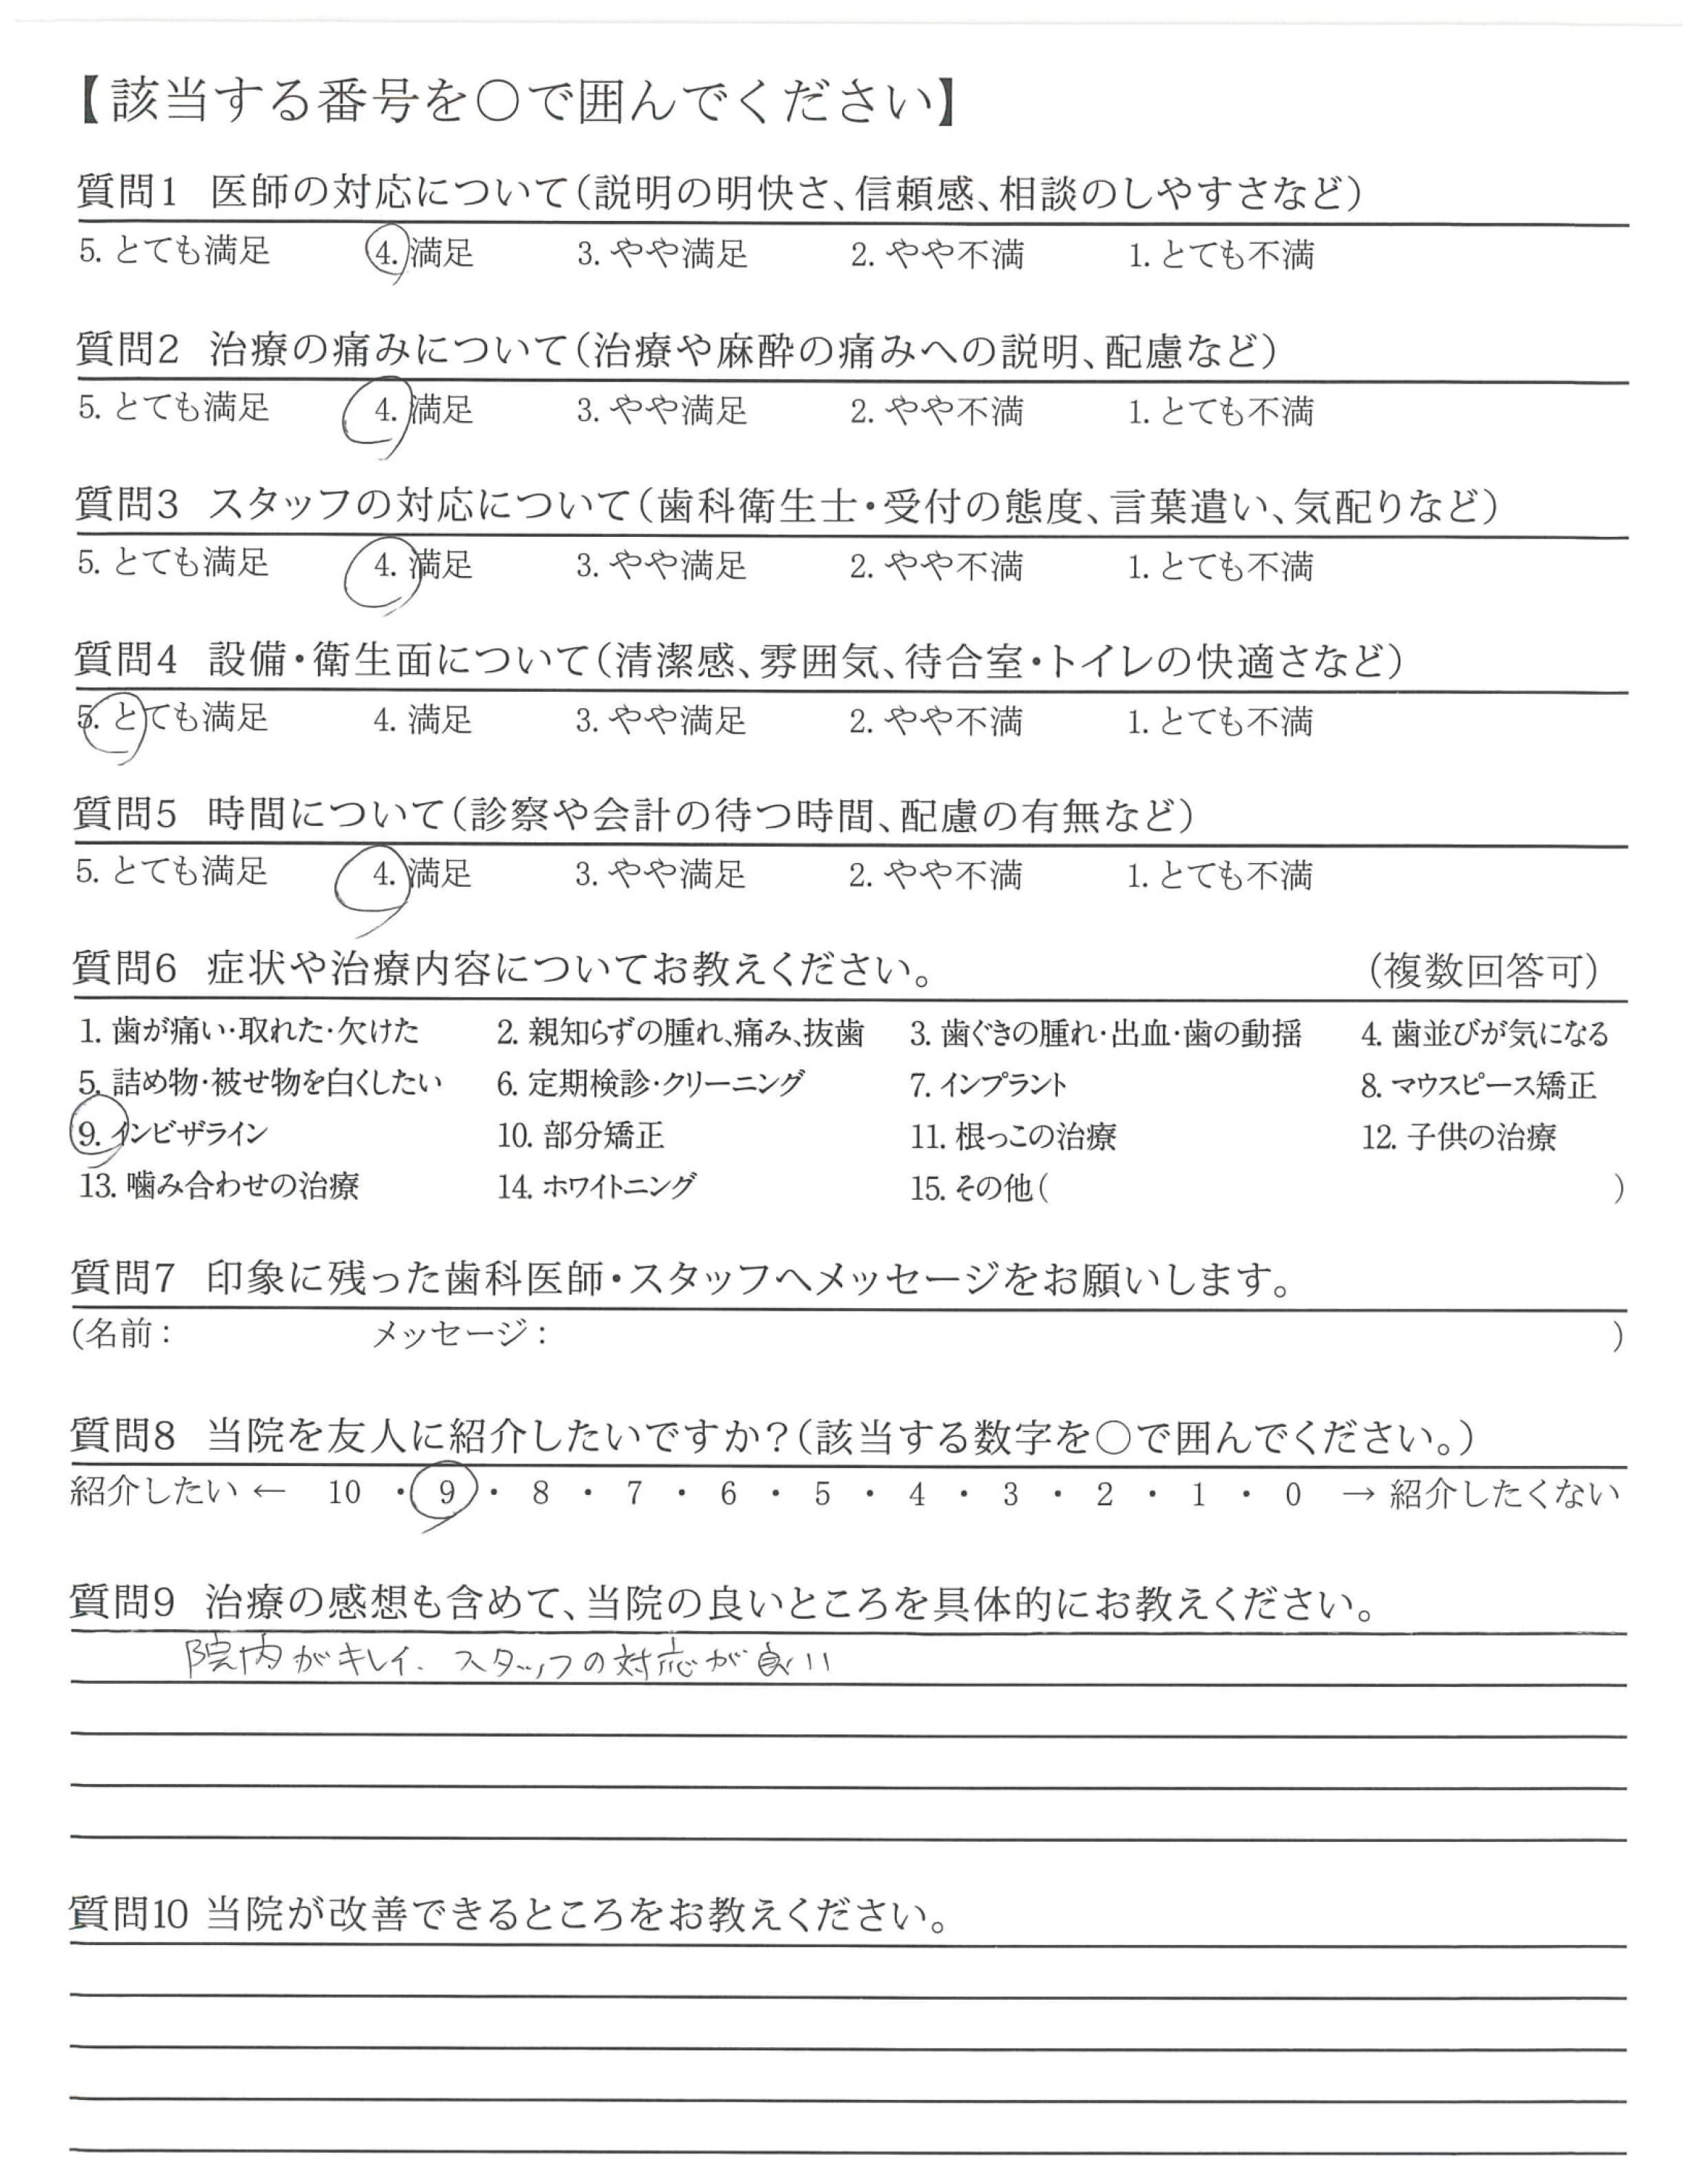 【該当する番号を○で囲んでください】
質問1 医師の対応について(説明の明快さ、信頼感、相談のしやすさなど)
5. とても満足 4. 満足 3. やや満足 2. やや不満 1. とても不満
質問2 治療の痛みについて(治療や麻酔の痛みへの説明、配慮など)
5. とても満足 4. 満足 3. やや満足 2. やや不満 1. とても不満
質問3 スタッフの対応について(歯科衛生士・受付の態度、言葉遣い、気配りなど)
5. とても満足 4. 満足 3. やや満足 2. やや不満 1. とても不満
質問4 設備・衛生面について(清潔感、雰囲気、待合室・トイレの快適さなど)
5. とても満足 4. 満足 3. やや満足 2. やや不満 1. とても不満
質問5 時間について(診察や会計の待つ時間、配慮の有無など)
5. とても満足 4. 満足 3. やや満足 2. やや不満 1. とても不満
質問6 症状や治療内容についてお教えください。 (複数回答可)
1. 歯が痛い・取れた・欠けた 2. 親知らずの腫れ、痛み、抜歯 3. 歯ぐきの腫れ・出血・歯の動揺 4. 歯並びが気になる
5. 詰め物・被せ物を白くしたい 6. 定期検診・クリーニング 7. インプラント 8. マウスピース矯正
9. インビザライン 10. 部分矯正 11. 根っこの治療 12. 子供の治療
13. 噛み合わせの治療 14. ホワイトニング 15. その他( )
質問7 印象に残った歯科医師・スタッフへメッセージをお願いします。
(名前: メッセージ: )
質問8 当院を友人に紹介したいですか?(該当する数字を○で囲んでください。)
紹介したい ← 10 ・ 9 ・ 8 ・ 7 ・ 6 ・ 5 ・ 4 ・ 3 ・ 2 ・ 1 ・ 0 → 紹介したくない
質問9 治療の感想も含めて、当院の良いところを具体的にお教えください。
院内がキレイ. スタッフの対応が良い
質問10 当院が改善できるところをお教えください。